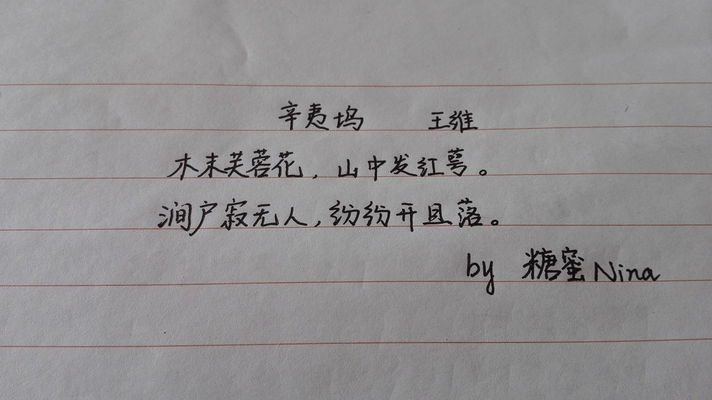 辛夷坞 王维
木末芙蓉花，山中发红萼。
涧户寂无人，纷纷开且落。
by 糖蜜Nina